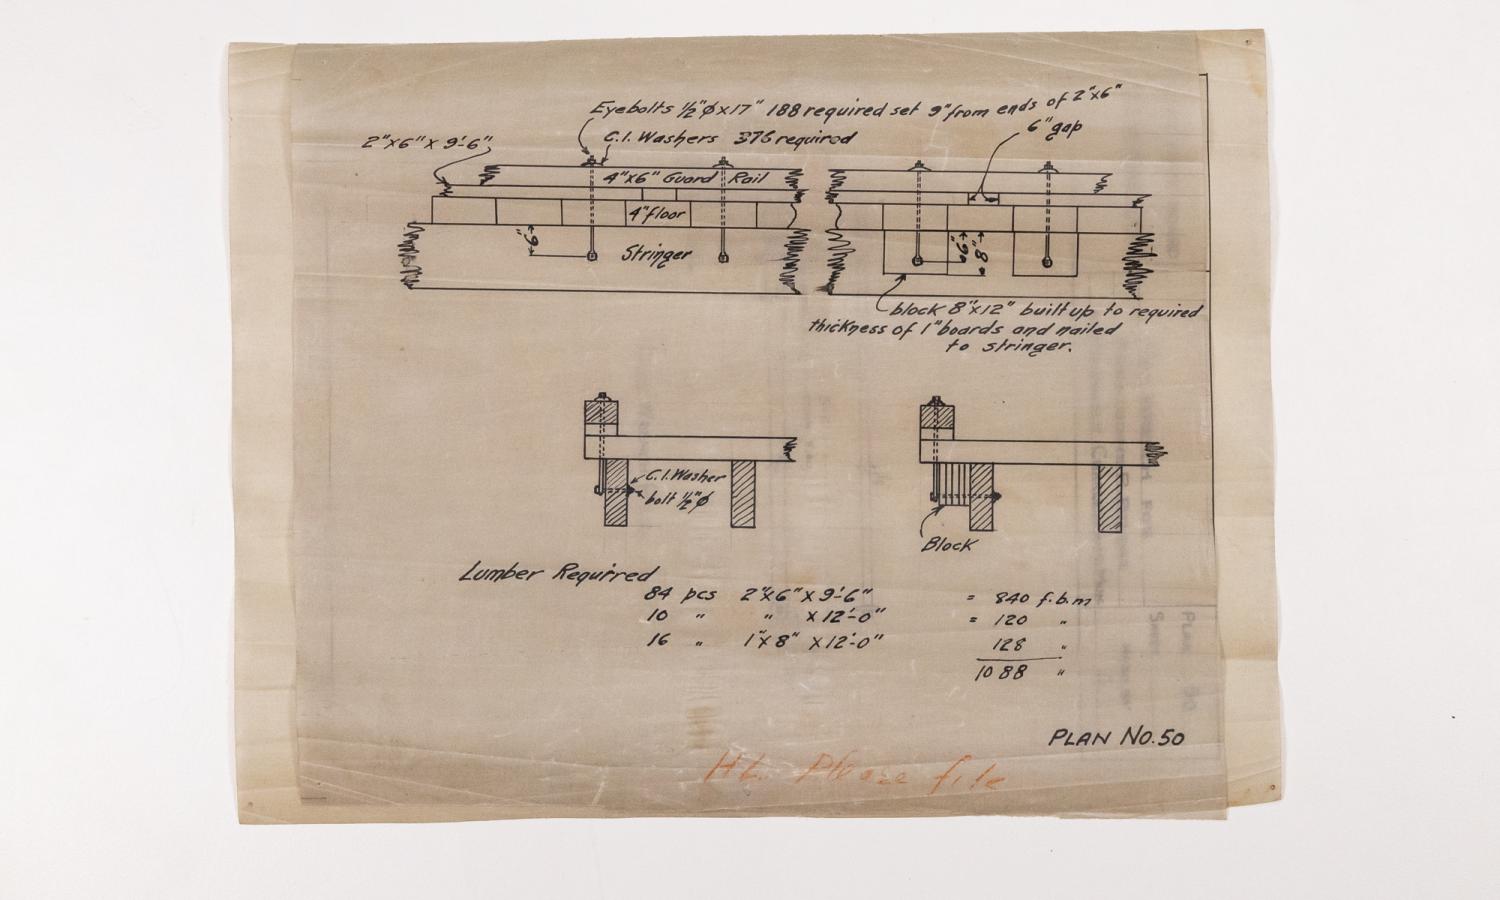 Eyebolts ½"ø x 17" 188 required set 9" from ends of 2"x6"
C.I. Washers 376 required
6" gap
2"x6" x 9'-6"
4"x6" Guard Rail
4" floor
Stringer
9"
9"
8"
block 8"x12" built up to required
thickness of 1" boards and nailed
to stringer.
C.I. Washer
bolt ½"ø
Block
Lumber Required
84 pcs 2"x6" x 9'-6" = 840 f.b.m
10 " " x 12'-0" = 120 "
16 " 1"x8" x 12'-0" 128 "
1088 "
PLAN No. 50
Please file